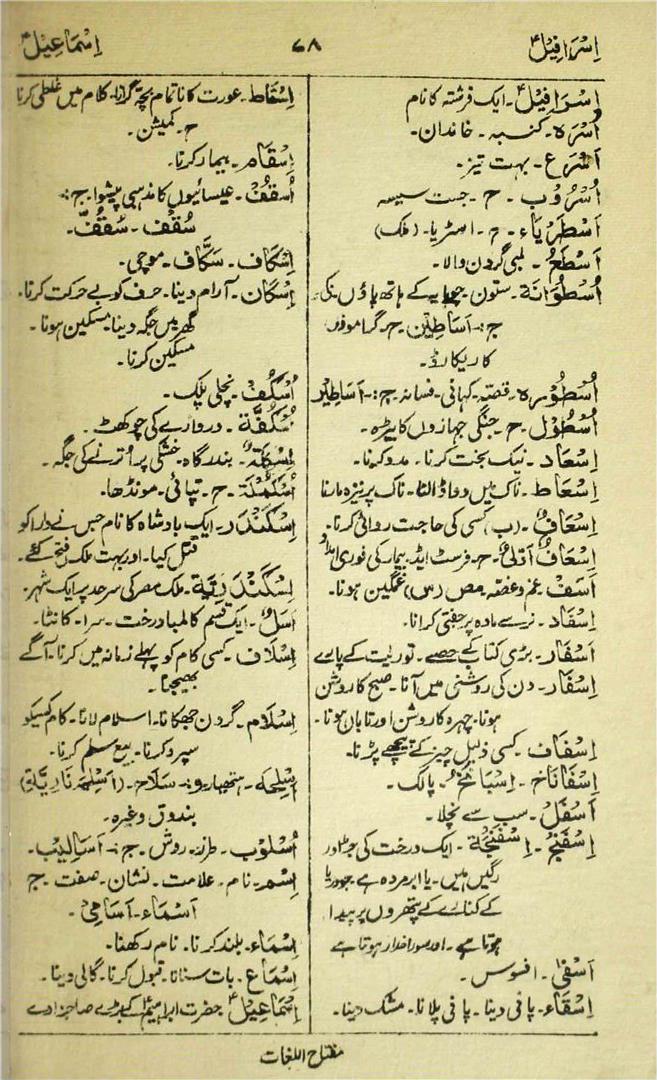 اِسْرَافِیْلؑ
۷۸
اِسْمَاعِیْلؑ
اِسْرَافِیْلؑ۔ ایک فرشتہ کا نام
اُسْرَہ۔ کنبہ۔ خاندان۔
اَسْرَع۔ بہت تیز۔
اُسْرُوْب۔ ح۔ جست سیسہ
اَسْطَرِیَاء۔ ح۔ اسٹریا۔ (ملک)
اَسْطَعُ۔ لمبی گردن والا۔
اُسْطُوَانَۃ۔ ستون۔ چوپایہ کے ہاتھ پاؤں
ج:۔ اَسَاطِیْن۔ ح۔ گراموفون
کا ریکارڈ۔
اُسْطُوْرہ۔ قصہ۔ کہانی۔ فسانہ۔ ج:۔ اَسَاطِیْر
اُسْطُوْل۔ ح۔ جنگی جہازوں کا بیڑہ۔
اِسْعَاد۔ نیک بخت کرنا۔ مدد کرنا۔
اِسْعَاط۔ ناک میں دوا ڈالنا۔ ناک پر نیزہ مارنا
اِسْعَافُ۔ (ب) کسی کی حاجت روائی کرنا۔
اِسْعَافُ اَوَّلِیُّ۔ ح۔ فرسٹ ایڈ۔ بیمار کی فوری امداد
اَسَفْ۔ غم و غصہ۔ مص (س) غمگین ہونا۔
اِسْفَاد۔ نر سے مادہ پر جفتی کرانا۔
اَسْفَار۔ بڑی کتاب کے حصے۔ توریت کے پارے
اِسْفَار۔ دن کی روشنی میں آنا۔ صبح کا روشن
ہونا۔ چہرہ کا روشن اور تاباں ہونا۔
اِسْفَاف۔ کسی ذلیل چیز کے پیچھے پڑنا۔
اِسْفَانَاخ۔ اِسْبَانَخُ۔ پالک۔
اَسْفَلُ۔ سب سے نچلا۔
اِسْفَنْجُ۔ اِسْفَنْجَۃ۔ ایک درخت کی جڑ اور
رگیں ہیں۔ یا ابر مردہ ہے جو دریا
کے کنارے کے پتھروں پر پیدا
ہوتا ہے۔ اور سوراخدار ہوتا ہے
اَسْفیٰ۔ افسوس۔
اِسْقَاء۔ پانی دینا۔ پانی پلانا۔ مشک دینا۔
اِسْقَاط۔ عورت کا نا تمام بچہ گرانا۔ کلام میں غلطی کرنا
ح۔ کمیشن۔
اِسْقَام۔ بیمار کرنا۔
اُسْقُفْ۔ عیسائیوں کا مذہبی پیشوا۔ ج:۔
سُقْف۔ سُقُفّ۔
اِسْکَاف۔ سَکَّاف۔ موچی۔
اِسْکَان۔ آرام دینا۔ حرف کو بے حرکت کرنا۔
گھر میں جگہ دینا۔ مسکین ہونا۔
مسکین کرنا۔
اُسْکُفْ۔ نچلی پلک۔
اُسْکُفَّۃ۔ دروازے کی چوکھٹ۔
اِسْکِلَۃ۔ بندرگاہ۔ خشکی پر اُترنے کی جگہ۔
اُسْکُمْلَۃ۔ ح۔ تپائی۔ مونڈھا۔
اِسْکَنْدَر۔ ایک بادشاہ کا نام جس نے دارا کو
قتل کیا۔ اور بہت ملک فتح کئے۔
اِسْکَنْدَرِیَّۃ۔ ملک مصر کی سرحد پر ایک شہر۔
اَسَلُ۔ ایک قسم کا لمبا درخت۔ سرا۔ کانٹا۔
اِسْلَاف۔ کسی کام کو پہلے زمانہ میں کرنا۔ آگے
بھیجنا۔
اِسْلَام۔ گردن جھکانا۔ اسلام لانا۔ کام کسیکو
سپرد کرنا۔ بیع سلم کرنا۔
اَسْلِحہ۔ ہتھیار و:۔ سلَاح۔ (اَسْلِحَۃ نَارِیَّۃ)
بندوق وغیرہ۔
اُسْلُوْب۔ طرز۔ روش۔ ج:۔ اَسَالِیْب۔
اِسْم۔ نام۔ علامت۔ نشان۔ صفت۔ ج
اَسْمَاء۔ اَسَامِیْ۔
اِسْمَاء۔ بلند کرنا۔ نام رکھنا۔
اِسْمَاع۔ بات سنانا۔ قبول کرنا۔ گالی دینا۔
اِسْمَاعِیْلؑ۔ حضرت ابراہیمؑ کے بڑے صاحبزادے
مفتاح اللغات